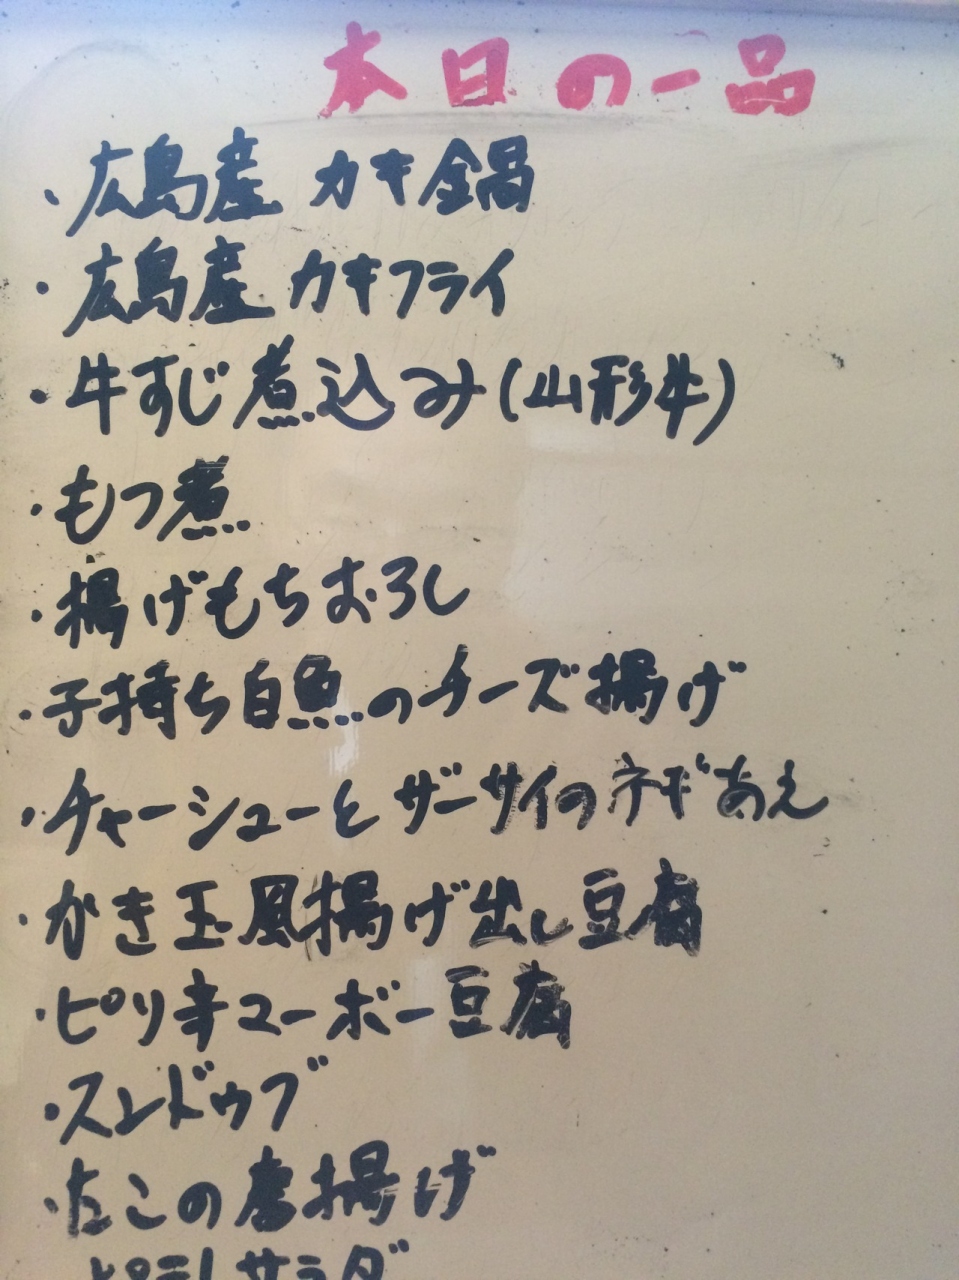 本日の一品
・広島産 カキ鍋
・広島産 カキフライ
・牛すじ煮込み(山形牛)
・もつ煮
・揚げもちおろし
・子持ち白魚のチーズ揚げ
・チャーシューとザーサイのネギあえ
・かき玉風揚げ出し豆腐
・ピリ辛マーボー豆腐
・スンドゥブ
・たこの唐揚げ
サラダ